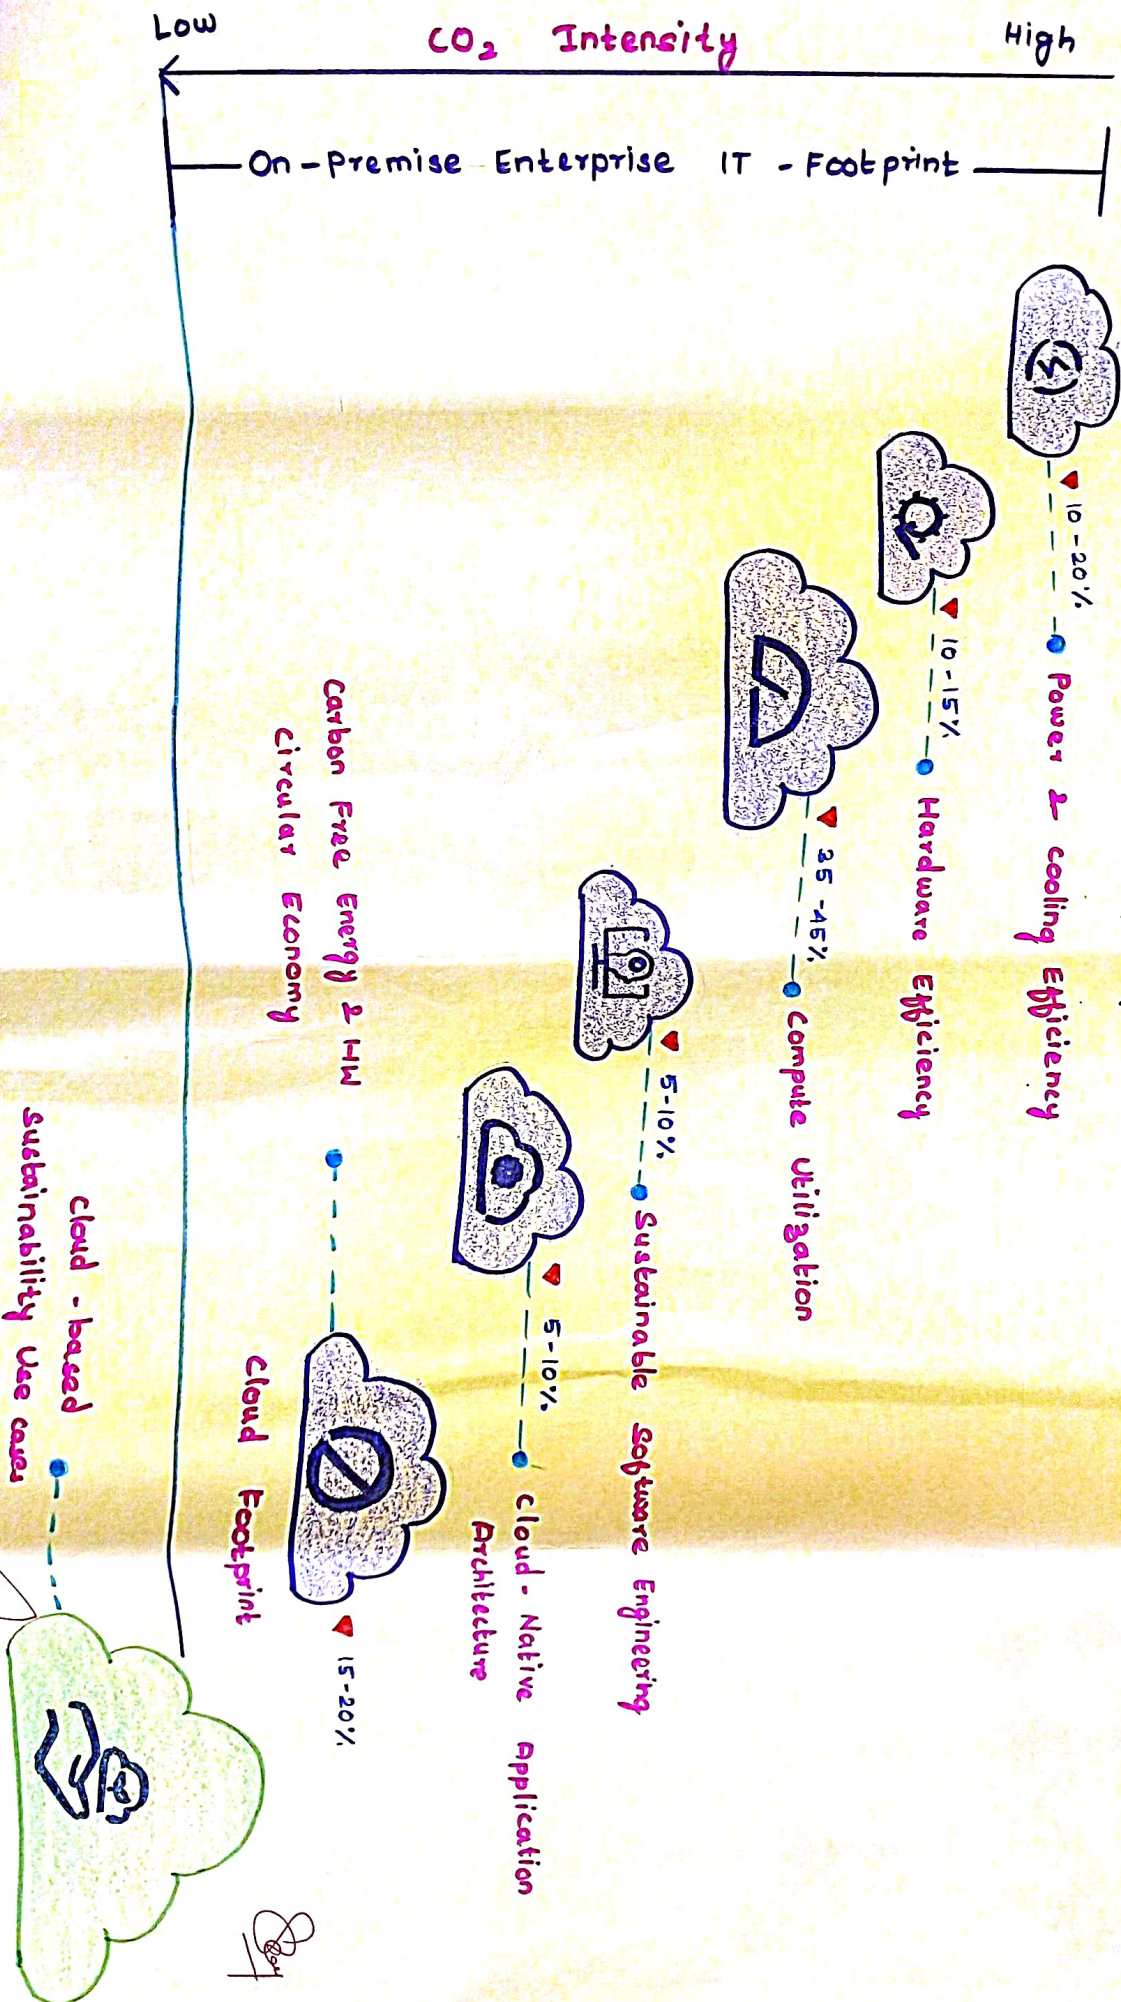 Low
CO₂ Intensity
High
On-Premise Enterprise IT - Footprint
▼ 10-20%
Power & cooling Efficiency
▼ 10-15%
Hardware Efficiency
▼ 35-45%
Compute Utilization
▼ 5-10%
Sustainable Software Engineering
▼ 5-10%
Cloud-Native Application
Architecture
Carbon Free Energy & HW
Circular Economy
▼ 15-20%
Cloud Footprint
Cloud-based
Sustainability Use cases